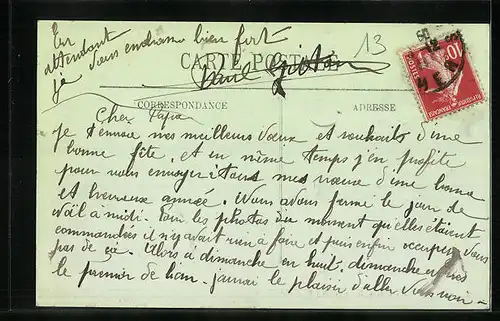 En
attendant
je vous embrasse bien fort
Paul
13
CARTE POSTALE
CORRESPONDANCE
ADRESSE
10
POSTES
Cher
Je t'envoie mes meilleurs vœux et souhaits d'une
bonne fête, et en même temps j'en profite
pour vous envoyer à tous mes vœux d'une bonne
et heureuse année. Nous avons fermé le jour de
Noël à midi. Pour les photos du moment qu'elles étaient
commandées il n'y avait rien à faire et puis enfin occupez vous
pas de ça. Alors à dimanche en huit, dimanche
le premier de l'an. j'aurai le plaisir d'aller vous voir -